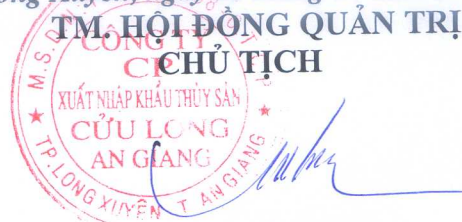 TM. HỘI ĐỒNG QUẢN TRỊ
CHỦ TỊCH
M.S.D
CÔNG TY
CP
XUẤT NHẬP KHẨU THỦY SẢN
CỬU LONG
AN GIANG
TP. LONG XUYÊN T. AN GIANG